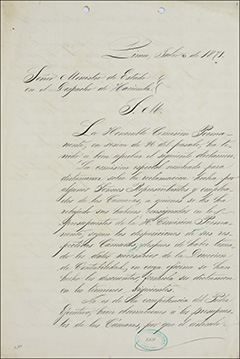 Lima, Julio 6 de 1871.
Señor Ministro de Estado
en el Despacho de Hacienda
S. M.
La Honorable Comision Perma-
nente, en sesion de 26 del pasado, ha te-
nido a bien aprobar el siguiente dictamen.
"La comision especial nombrada para
dictaminar sobre la reclamacion hecha por
algunos Señores Representantes y emplea-
dos de las Camaras, a quienes se les ha
rebajado sus haberes consignados en los
Presupuestos de la H. Comision Perma-
nente, segun las disposiciones de sus res-
pectivas Camaras, despues de haber toma-
do los datos necesarios de la Direccion
de Contabilidad, en cuya oficina se han
hecho los descuentos, formula su dictamen
en los terminos siguientes.
No es de la competencia del Poder
Ejecutivo, hacer observaciones a los presupues-
tos de las Camaras, por que el articulo